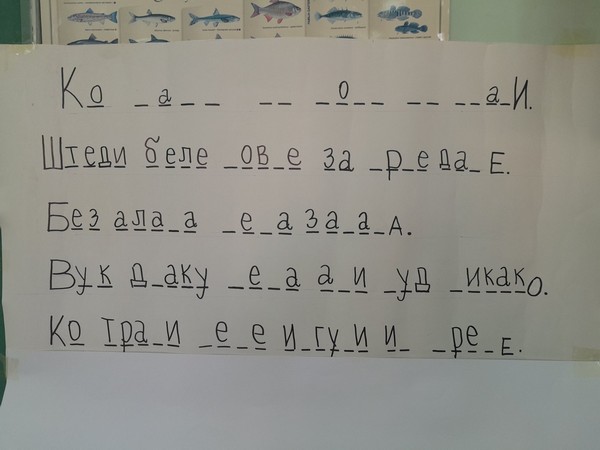 Ко _а__ __ _о__ __ __аИ.
Штеди беле _ов_е за _р_е да_Е.
Без ала_а _е_а за_а_А.
Вук д_аку _е_а а_и _уд _икако.
Ко тра_и _е_е и_гу_и и_ _ре_Е.